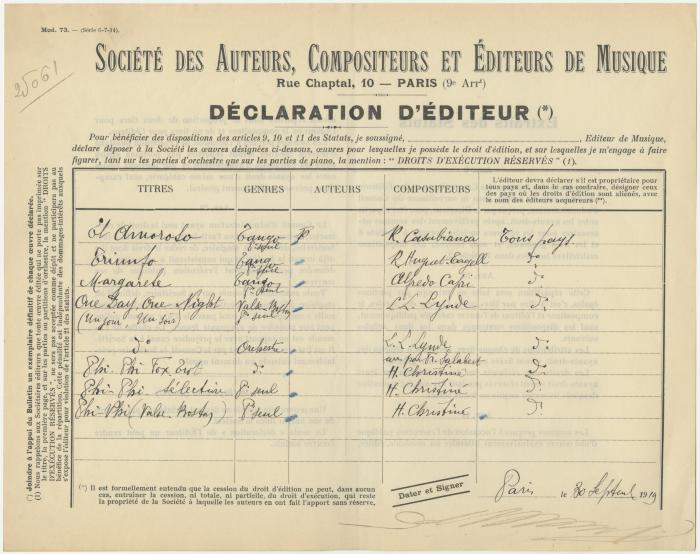 Mod. 73. — (Série 6-7-14).
25061
SOCIÉTÉ DES AUTEURS, COMPOSITEURS ET ÉDITEURS DE MUSIQUE
Rue Chaptal, 10 — PARIS (9e Arrt)
DÉCLARATION D'ÉDITEUR (*)
Pour bénéficier des dispositions des articles 9, 10 et 11 des Statuts, je soussigné, Editeur de Musique,
déclare déposer à la Société les œuvres désignées ci-dessous, œuvres pour lesquelles je possède le droit d'édition, et sur lesquelles je m'engage à faire
figurer, tant sur les parties d'orchestre que sur les parties de piano, la mention : " DROITS D'EXÉCUTION RÉSERVÉS " (1).
TITRES GENRES AUTEURS COMPOSITEURS
L'éditeur devra déclarer s'il est propriétaire pour
tous pays et, dans le cas contraire, désigner ceux
des pays où les droits d'édition sont aliénés, avec
le nom des éditeurs acquéreurs (**).
El Amoroso Tango Po seul R. Casabianca Tous pays
Triunfo Tango R. Huguet do
Margarete Tango Po seul Alfredo do
One Day, One Night Valse Boston L. L. Lynde do
(Un jour, Un soir) Po seul
do Orchestre L. L. Lynde do
arr. par F. Salabert
Phi-Phi Fox Trot do H. Christiné do
Phi-Phi Sélection Po seul H. Christiné do
Phi-Phi (Valse-Boston) Po seul H. Christiné do
(**) Il est formellement entendu que la cession du droit d'édition ne peut, dans aucun
cas, entraîner la cession, ni totale, ni partielle, du droit d'exécution, qui reste
la propriété de la Société à laquelle les auteurs en ont fait l'apport sans réserve.
Dater et Signer
Paris le 30 Septembre 1919
(*) Joindre à l'appui du bulletin un exemplaire définitif de chaque œuvre déclarée.
(1) Nous rappelons aux Sociétaires éditeurs que toute œuvre éditée qui ne porte pas imprimée sur
le titre, la première page, et sur les parties ou partitions d'orchestre, la mention " DROITS
D'EXÉCUTION RÉSERVÉS ", ne sera pas acceptée comme dépôt et ne participera pas au
bénéfice de la répartition. Cette pénalité est indépendante des dommages-intérêts auxquels
s'expose l'éditeur pour violation de l'article 21 des statuts.